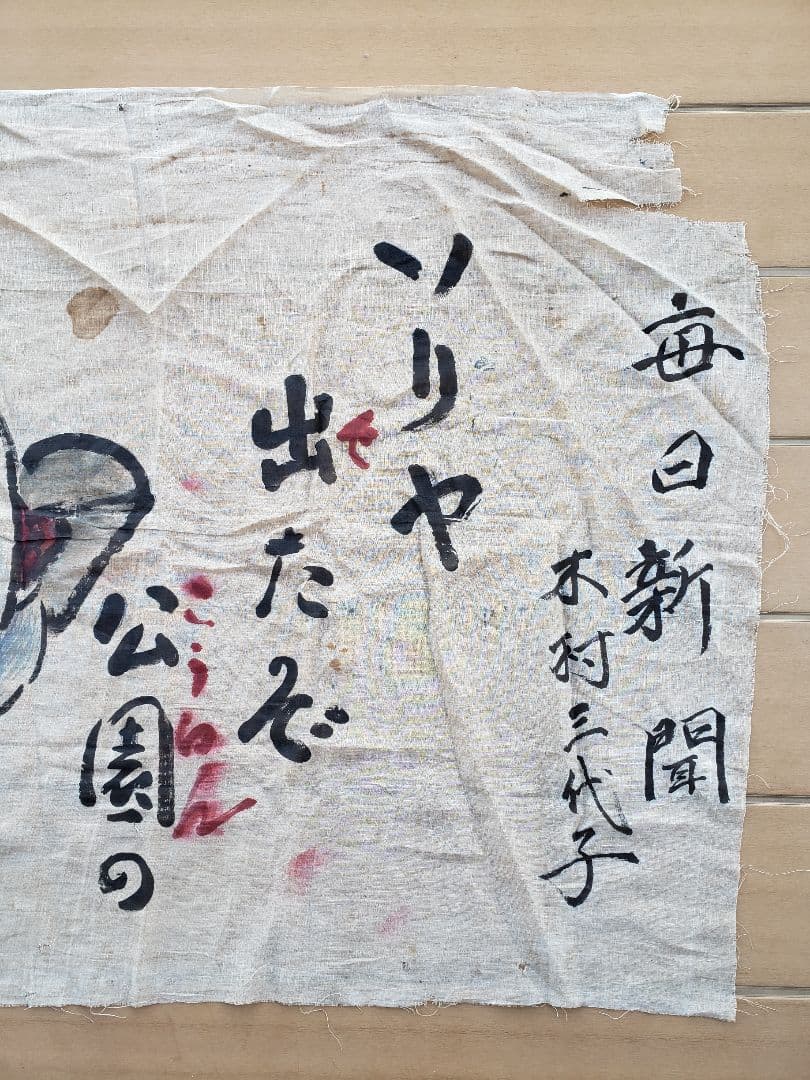 毎日新聞
木村三代子
ソリヤ
出たぞ
で
公園の
こうゑん